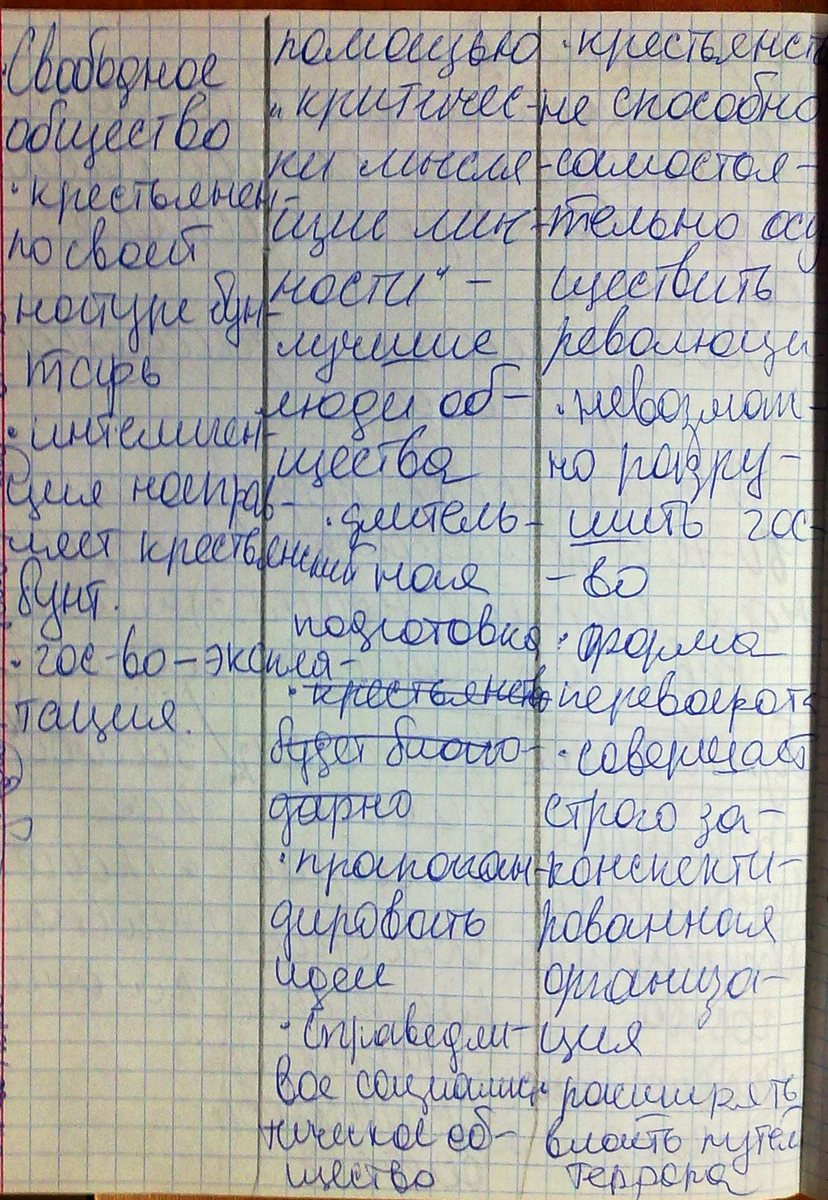 Свободное
общество
· крестьянен
по своей
натуре бун-
тарь
· интелиген-
ция направ-
ляет крестьянский
бунт.
· гос-во – экспля-
тация.
помощью
"критичес-
ки мысля-
щие лич-
ности" –
лучшие
люди об-
щества
· длитель-
ная
подготовка
· крестьянств
будет благо-
дарно
· пропаган-
дировать
идеи
· справедли-
вое социалис-
тическое об-
щество
· крестьянст
не способно
самостоя-
тельно осу
ществить
революци
· невозмож-
но разру-
шить гос-
-во
· форма
переворота
· совершает
строго за-
конспекти-
рованная
организа-
ция
· расширять
власть путем
террора